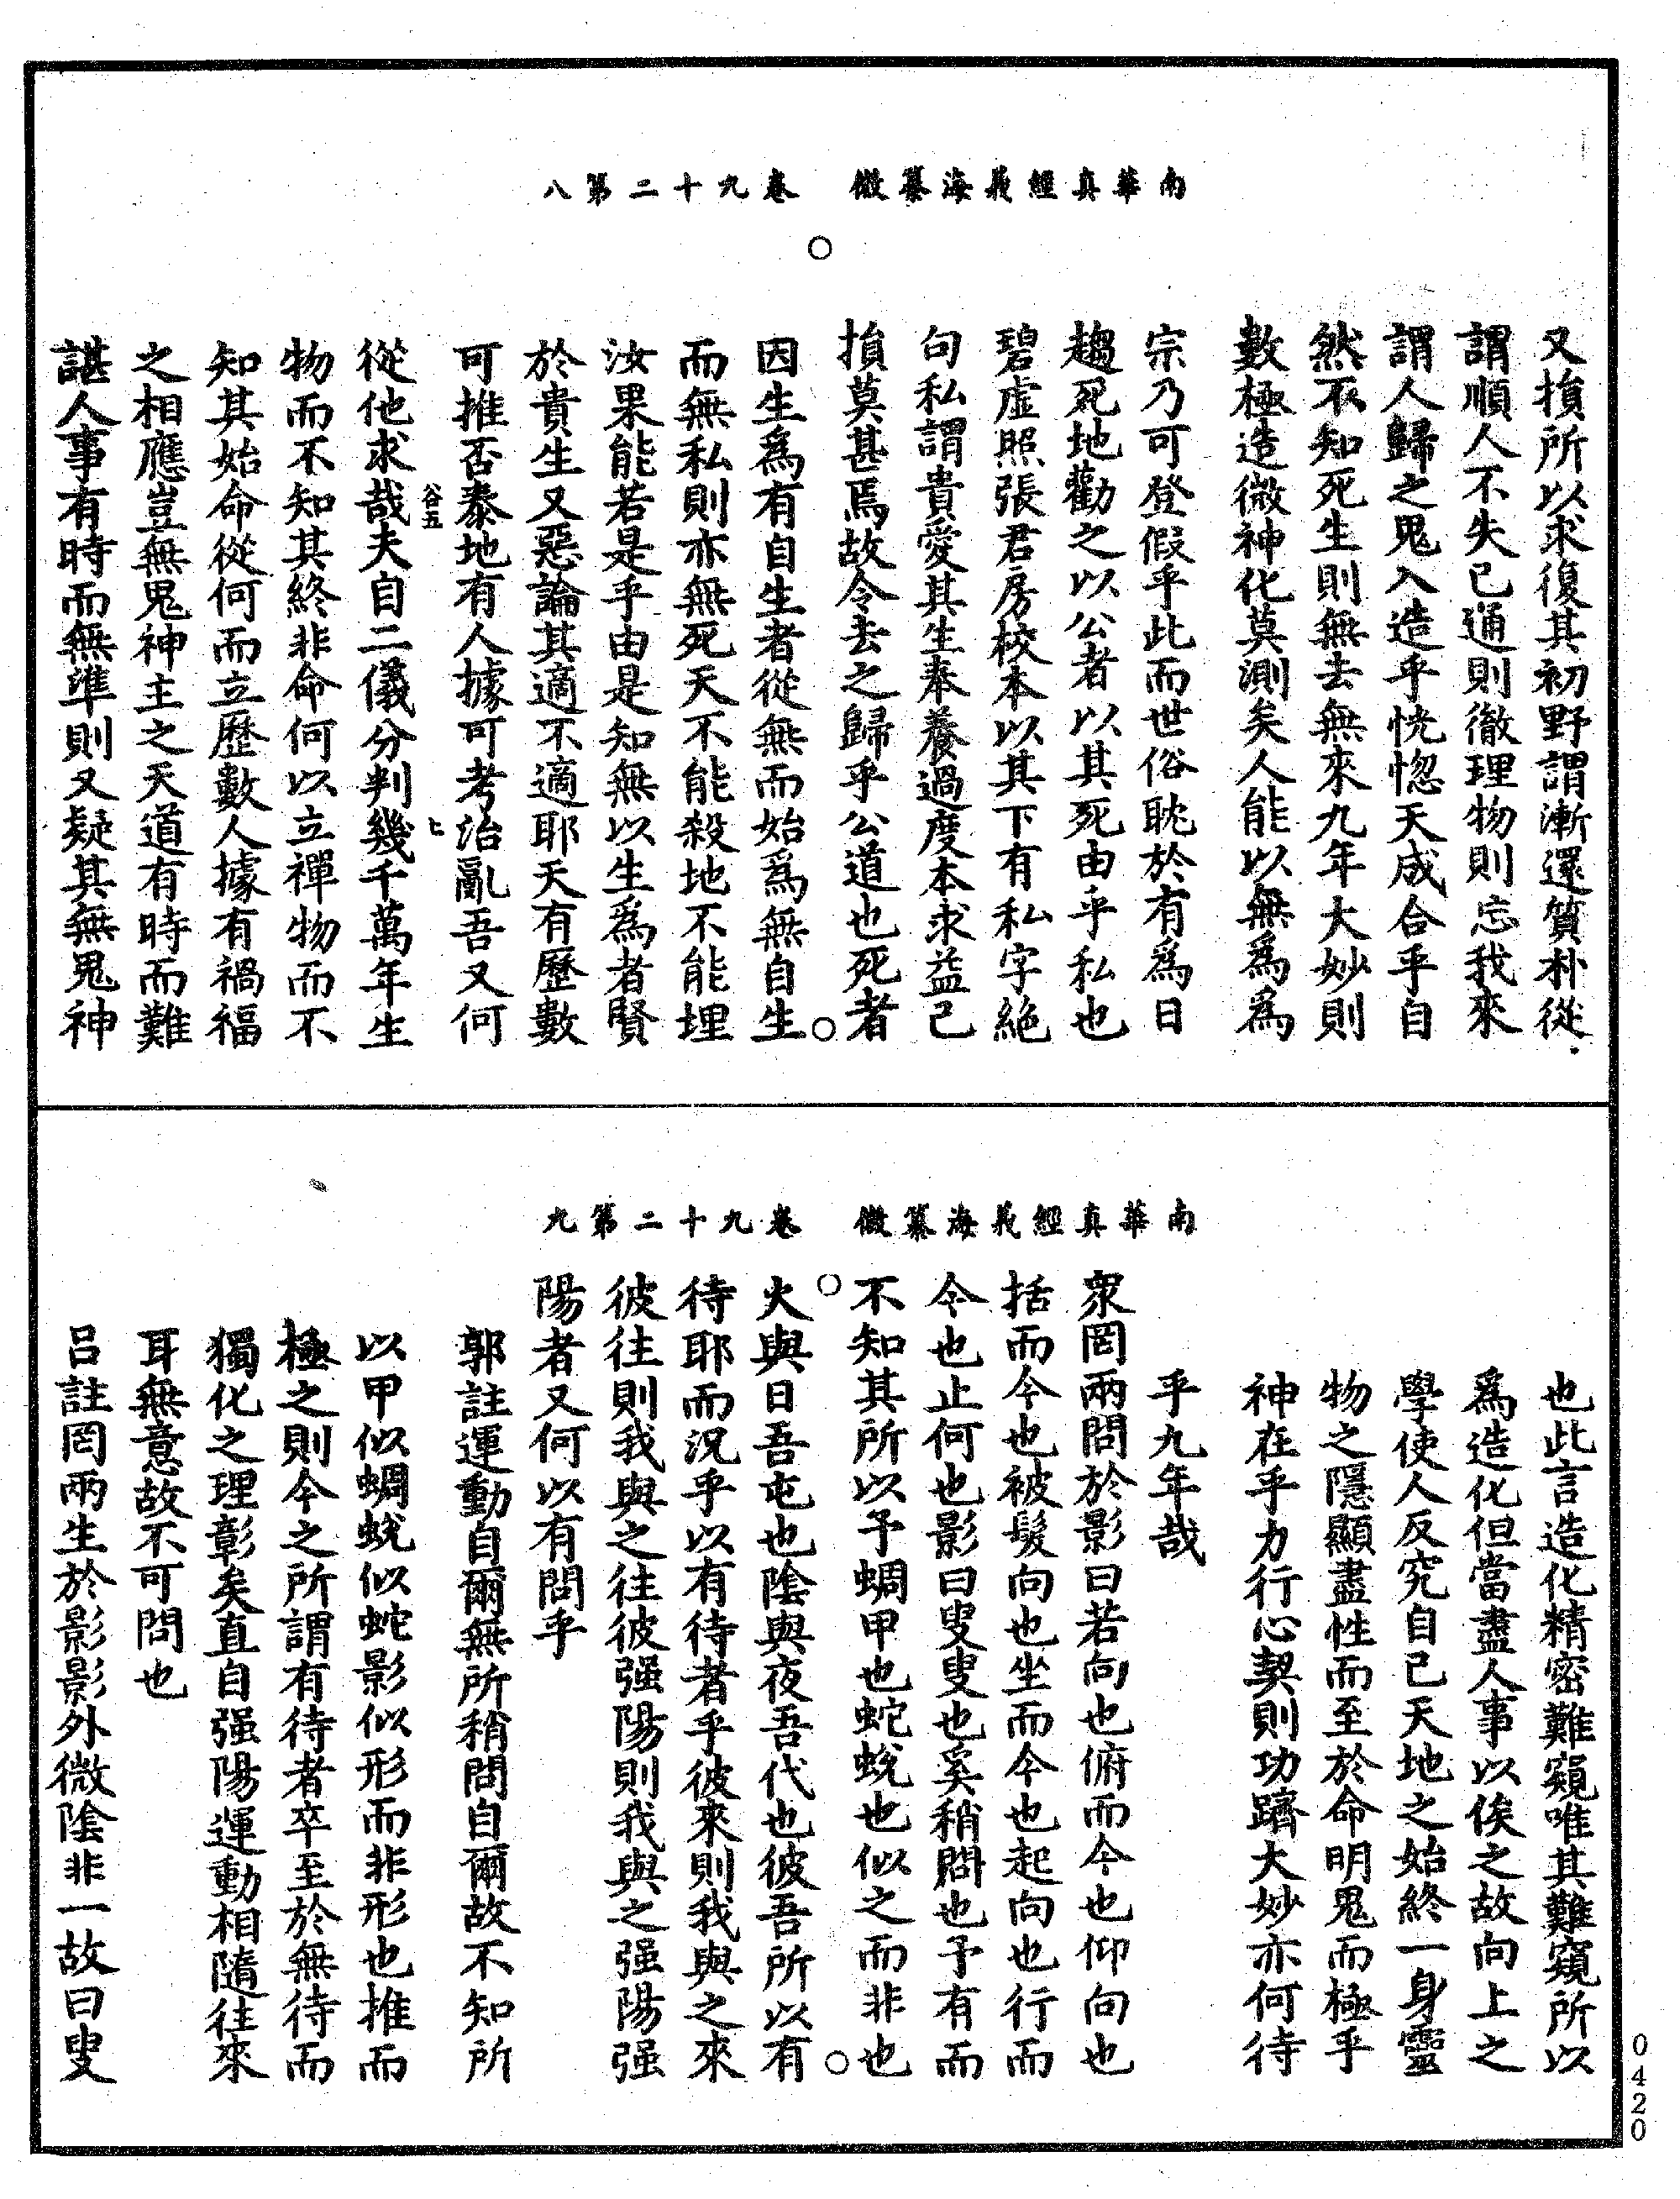 南華真經義海纂微　卷九十二第八
又損所以求復其初野謂漸還質朴從
謂順人不失己通則徹理物則忘我來
謂人歸之鬼入造乎恍惚天成合乎自
然不知死生則無去無來九年大妙則
數極造微神化莫測矣人能以無爲爲
宗乃可登假乎此而世俗眈於有爲日
趨死地勸之以公者以其死由乎私也
碧虛照張君房校本以其下有私字絶
句私謂貴愛其生奉養過度本求益己
損莫甚焉故令去之歸乎公道也死者
因生爲有自生者從無而始爲無自生
而無私則亦無死天不能殺地不能埋
汝果能若是乎由是知無以生爲者賢
於貴生又惡論其適不適耶天有歷數
可推否泰地有人據可考治亂吾又何
谷五　七
從他求哉夫自二儀分判幾千萬年生
物而不知其終非命何以立禪物而不
知其始命從何而立歷數人據有禍福
之相應豈無鬼神主之天道有時而難
諶人事有時而無準則又疑其無鬼神
南華真經義海纂微　卷九十二第九
也此言造化精密難窺唯其難窺所以
爲造化但當盡人事以俟之故向上之
學使人反究自己天地之始終一身靈
物之隱顯盡性而至於命明鬼而極乎
神在乎力行心契則功躋大妙亦何待
乎九年哉
衆罔兩問於影曰若向也俯而今也仰向也
括而今也被髮向也坐而今也起向也行而
今也止何也影曰叟叟也奚稍問也予有而
不知其所以予蜩甲也蛇蛻也似之而非也
火與日吾屯也陰與夜吾代也彼吾所以有
待耶而況乎以有待者乎彼來則我與之來
彼往則我與之往彼强陽則我與之强陽强
陽者又何以有問乎
郭註運動自爾無所稍問自爾故不知所
以甲似蜩蛻似蛇影似形而非形也推而
極之則今之所謂有待者卒至於無待而
獨化之理彰矣直自强陽運動相隨往來
耳無意故不可問也
吕註罔兩生於影影外微陰非一故曰叟
0420